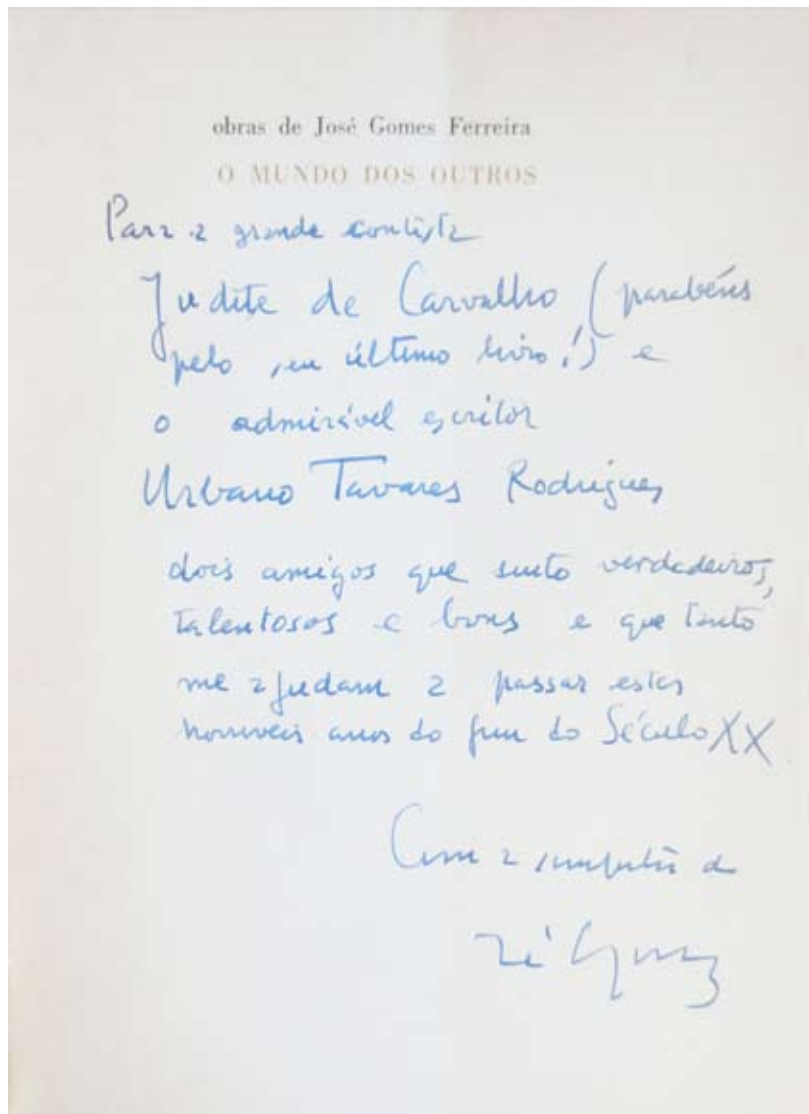 obras de José Gomes Ferreira
O MUNDO DOS OUTROS
Para a grande contista
Judite de Carvalho (parabéns
pelo seu último livro!) e
o admirável escritor
Urbano Tavares Rodrigues
dois amigos que sinto verdadeiros,
talentosos e bons e que tanto
me ajudam a passar estes
horríveis anos do fim do Século XX
Com a simpatia do
Zé Gomes